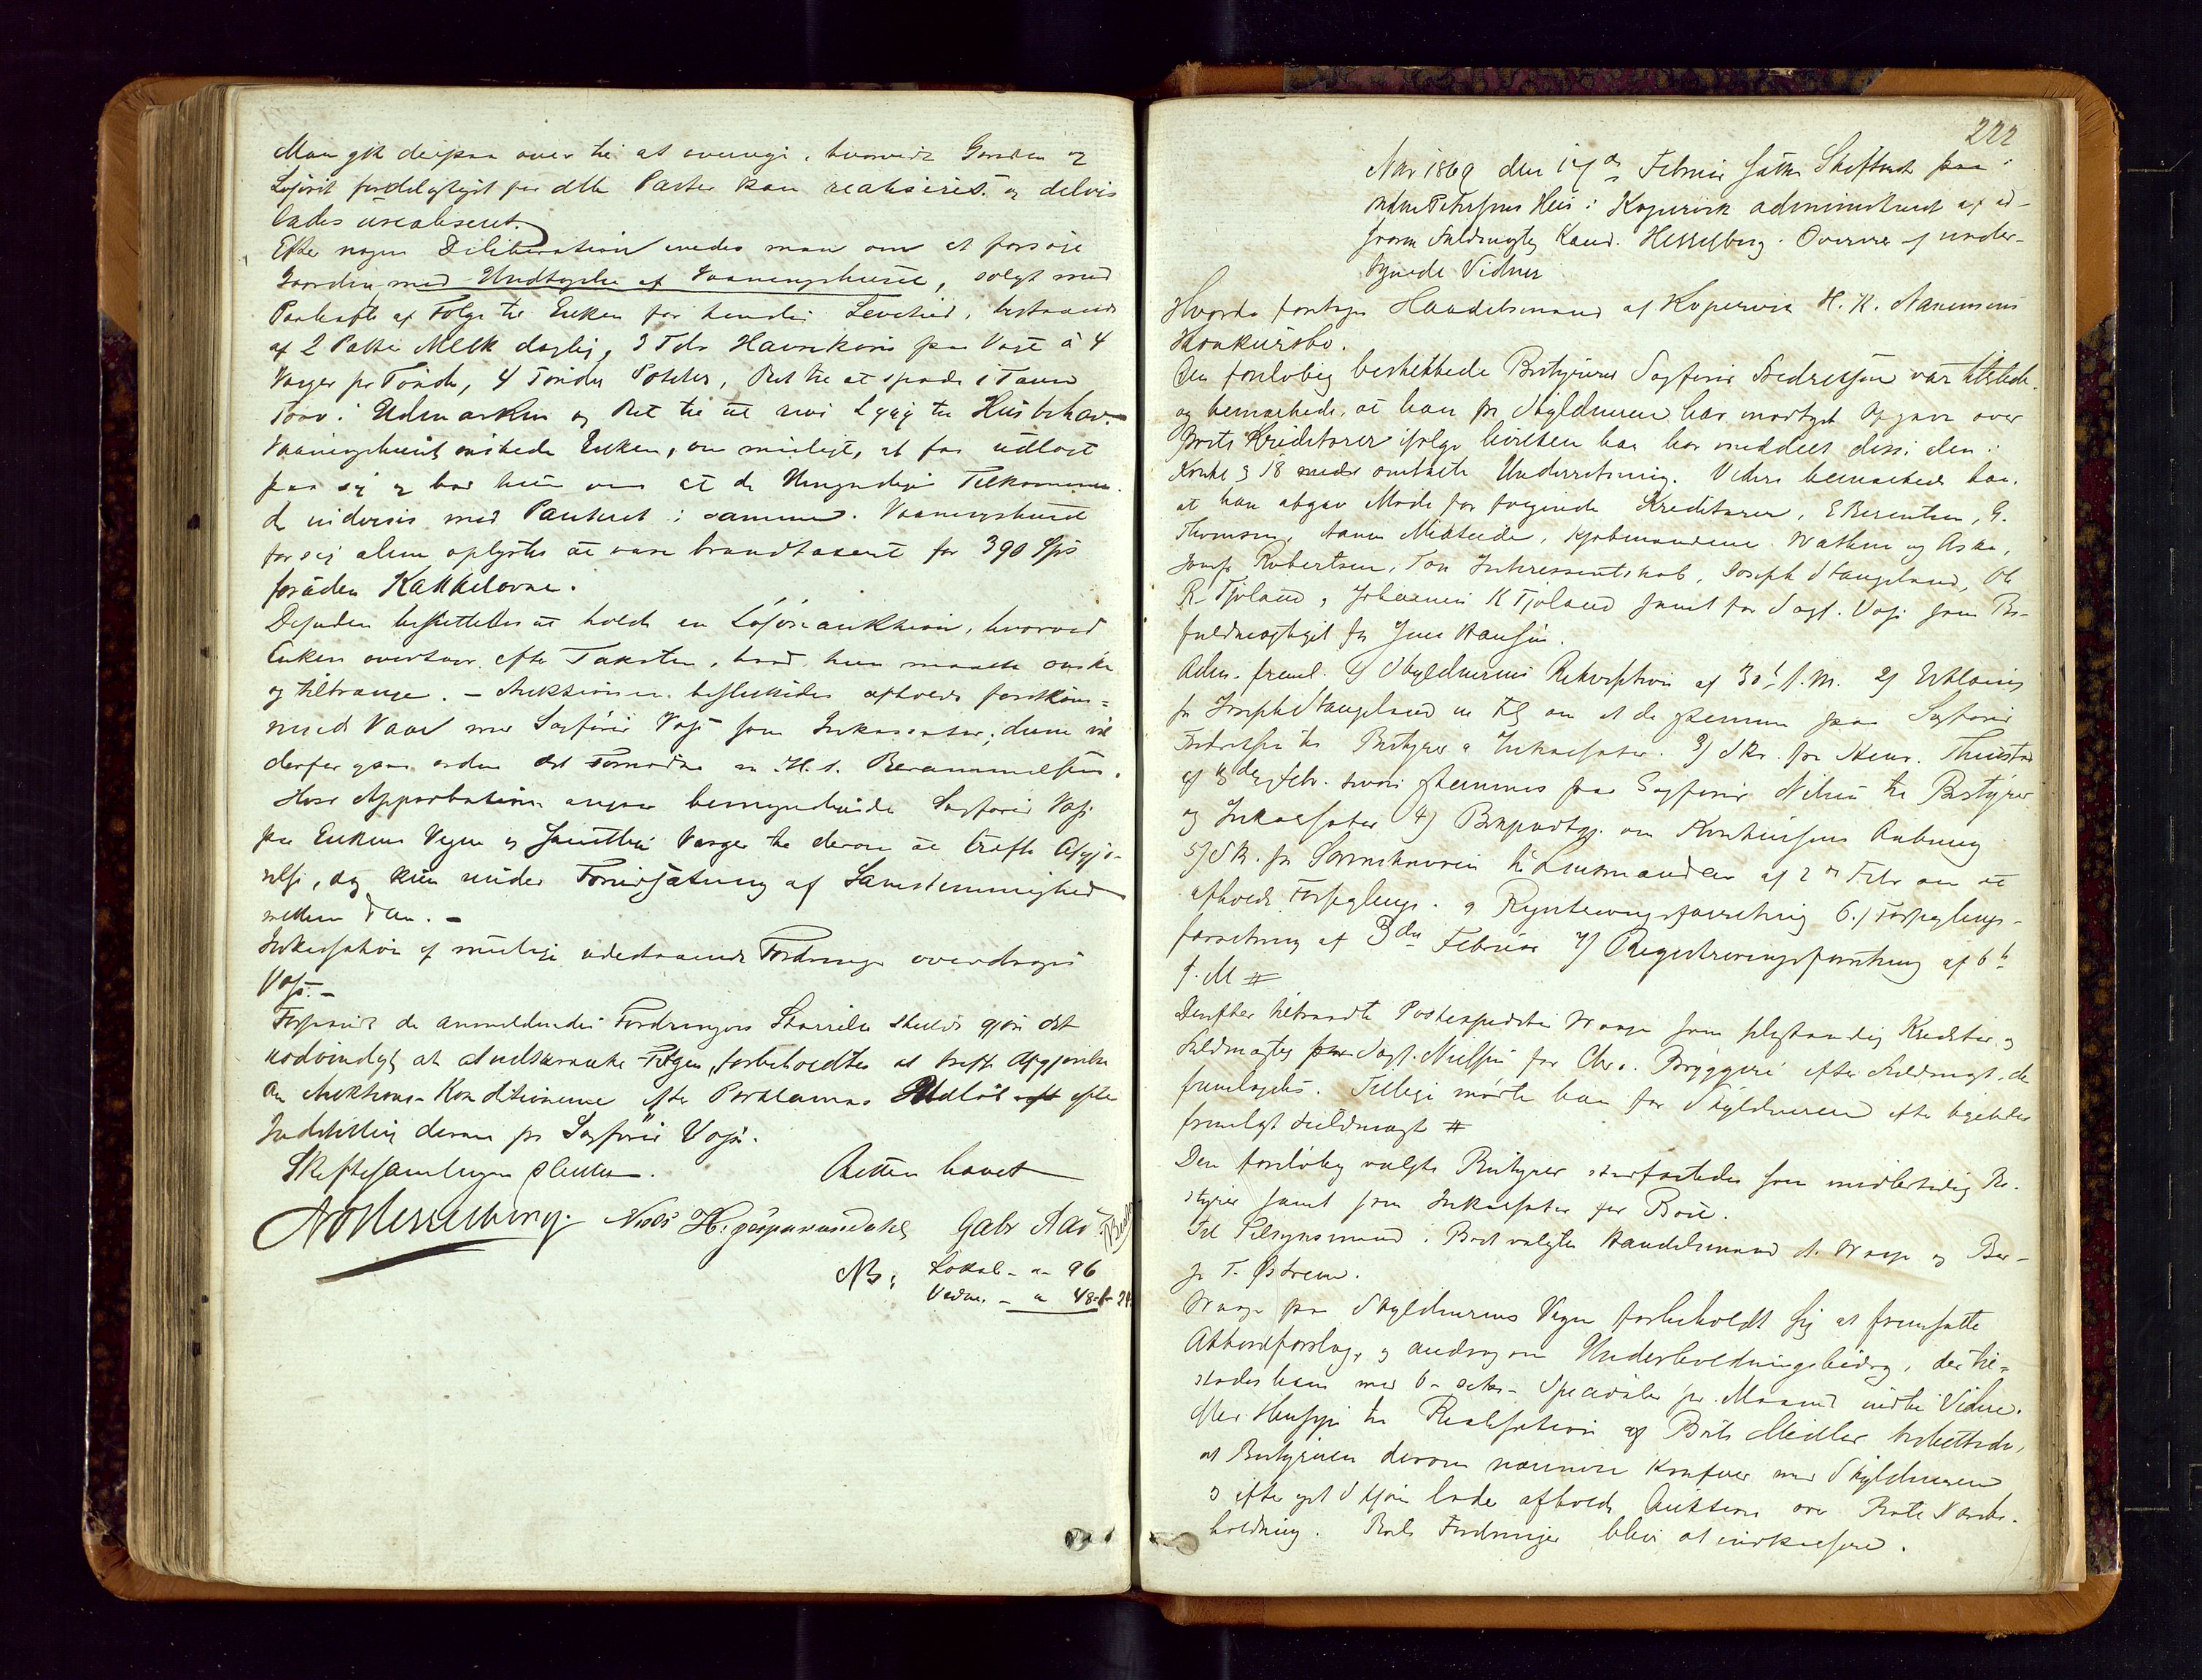 Man gik derpaa over til at overveie, hvorvidt Gaarden og
Løsøret fordelagtigst for alle Parter kan realiseres og delvis
lades urealiseret.
Efter nogen Deliberation enedes man om at forsøge
Gaarden med Undtagelse af Vaaningshuset, solgt med
Paahefte af Folge til Enken for hendes Levetid, bestaaende
af 2 Potter Melk daglig, 3 Tdr Havrekorn paa Vægt à 4
Vaager pr Tønde, 4 Tønder Poteter, Ret til at spade i Tanne
Torv i Udmarken og Ret til at rive Lyng til Husbehov.
Vaaningshuset ønskede Enken, om muligt, at faa udlagt
paa sig og bad hun om at de Umyndiges Tilkommen-
de indvises med Panteret i samme. Vaaningshuset
for sig alene oplystes at være brandtaxeret for 390 Spd
foruden Kakkelovne.
Desuden besluttedes at holde en Løsøreauktion, hvorved
Enken overtager efter Taksten, hvad hun maatte ønske
og tiltrænge. – Auktionen besluttedes afholdt førstkom-
mende Vaar med Sagfører Vogt som Inkassator; denne vil
derfor gaa
Hvis Approbation angaar bemyndigede Sagfører Vogt
paa Enkens Vegne og samtlige Værger til derom at træffe Afgjø-
relse, dog kun under Forudsætning af Samstemmighed
mellem dem. –
Inkassation af mulige udestaaende Fordringer overdroges
Vogt. –
Forsaavidt de anmeldendes Fordringers Størrelse skulde gjøre det
nødvendigt at indskrænke Følgen, forbeholdtes at træffe Afgjørelse
om Auktions-Konditionerne efter Proklamas Udløb efter
Indstilling derom fra Sagfører Vogt.
Skiftesamlingen sluttet. Retten hævet
A Hesselberg. Niels H. Gabr Aas
NB: Lokal – – 96
Vidne. – – 48

222
Aar 1869 den 17de Februar sattes Skifteret paa
Petersens Hus i Kopervik administreret af ed-
svoren Fuldmægtig Kand. Hesselberg. Overvær af under-
tegnede Vidner
Hvorda foretoges Handelsmand af Kopervik H. K. Nannesens
Konkursbo.
Den foreløbig beskikkede Bestyrer Sagfører Fredriksen var tilstede
og bemærkede, at han fra Skyldneren har modtaget Opgave over
Boets Kreditorer ifølge hvilken han har meddelt disse den i
Konk. § 18 omtalte Underretning. Videre bemærkede han,
at han afgav Møde for følgende Kreditorer, E Berentsen, G.
Thomsen, Midtside, Kjøbmændene Wathne og Aske,
Robertsen, Interessentskab, Joseph Stangeland, Ole
R Tjøland, Johannes K Tjøland samt for Sagf. Vogt som Be-
fuldmægtiget for Jens Hansen.
Adm. freml. 1) Skyldnerens Rekvisition af 30te f. M. 2) Erklæring
fra Joseph Stangeland m Fl om at de stemmer paa Sagfører
Fredriksen til Bestyrer og Inkassator. 3) Skr. fra Thuestad
af Febr. hvori stemmes paa Sagfører Nilsen til Bestyrer
og Inkassator 4) om Konkursens Aabning
5) Skr. fra Sorenskriveren til Lensmanden af 2den Febr om at
afholde Forseglings- og Registreringsforretning 6.) Forseglings-
forretning af 3die Februar 7) Registreringsforretning af 6te
d. M #
Derefter tilstaadte Postexpeditør Waage som selvstændig Kreditor og
Fuldmægtig for Sagf. Nielsen for Chr.s Bryggeri efter Fuldmagt, der
fremlagdes. Tillige mødte han for Skyldneren efter ligeledes
fremlagt Fuldmagt #
Den foreløbig valgte Bestyrer stadfæstedes som midlertidig Be-
styrer samt som Inkassator for Boet.
Til Tilsynsmænd i Boet valgtes Handelsmand A. Waage og Ber-
ge T. Østrem.
Waage paa Skyldnerens Vegne forbeholdt sig at fremsætte
Akkordforslag, og androg om Underholdningsbidrag, der til-
stodes ham med 6 – seks – Specidaler pr. Maaned indtil Videre.
Med Hensyn til Realisation af Boets Midler besluttedes,
at Bestyreren derom nærmere konferer med Skyldneren
og efter eget Skjøn lade afholde Auktion over Boets Varebe-
holdning. Boets Fordringer blive at inkassere.